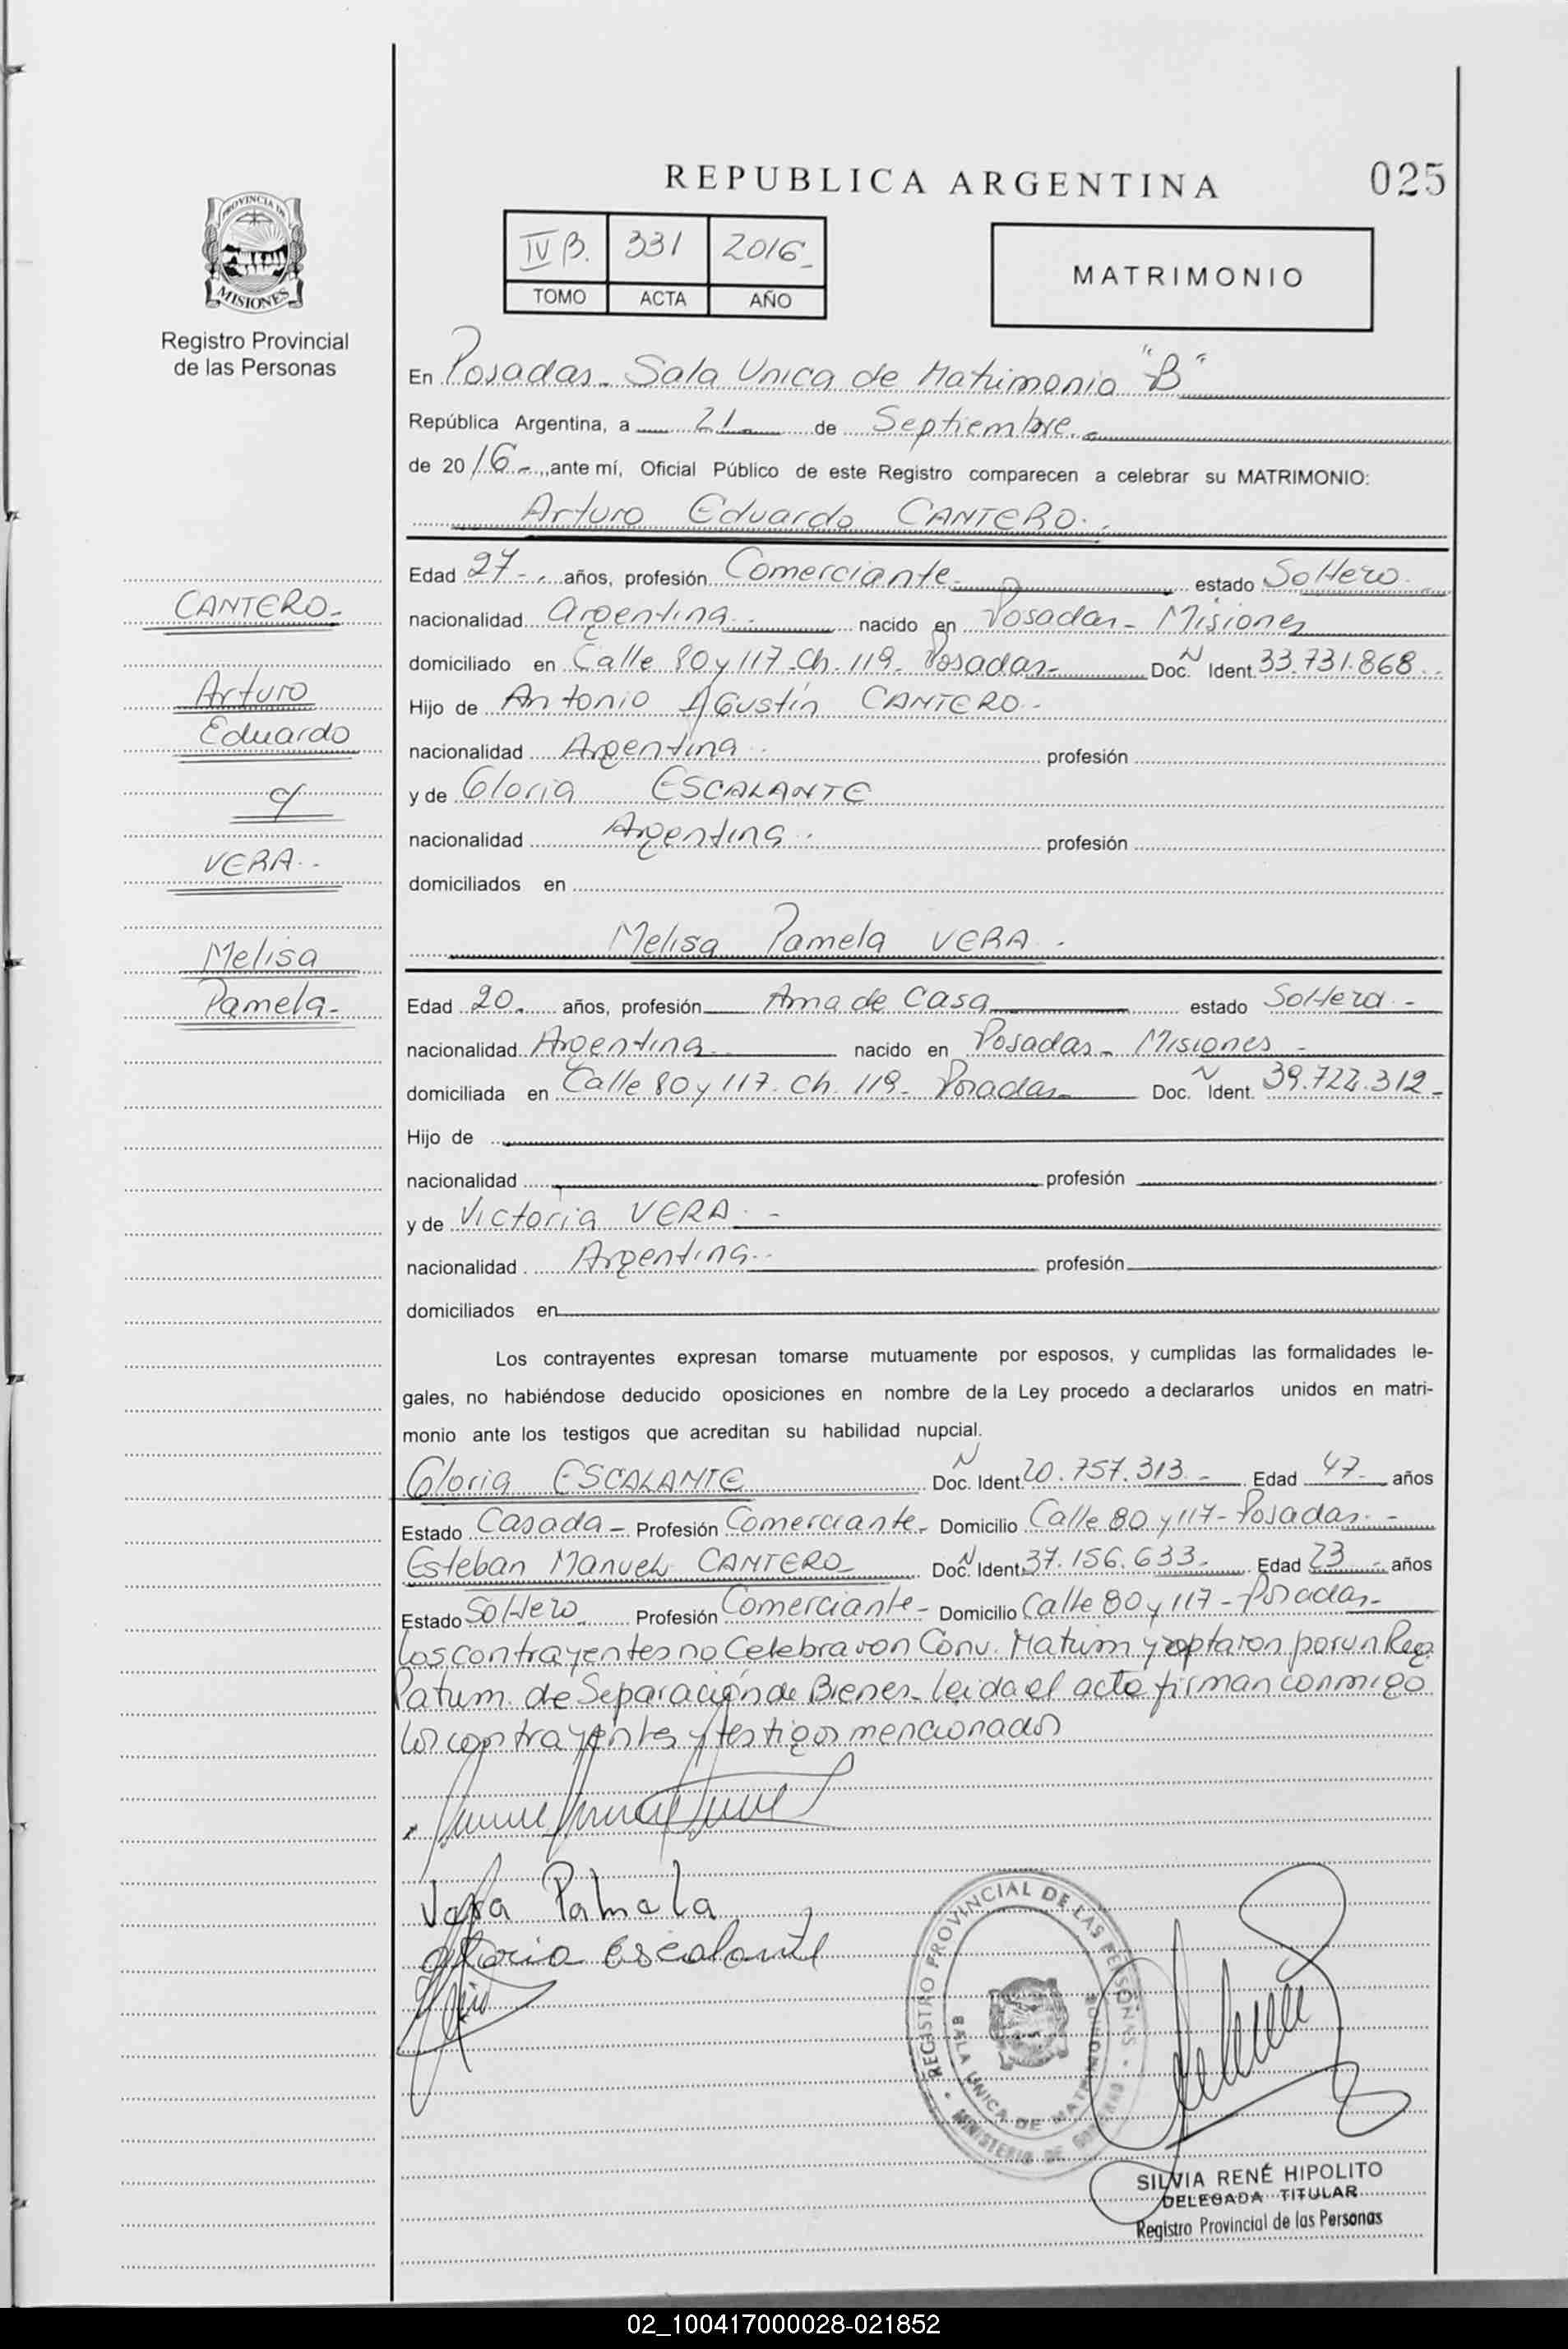 REPUBLICA ARGENTINA
025
PROVINCIA DE
MISIONES
Registro Provincial
de las Personas
IV B. 331 2016-
TOMO ACTA AÑO
MATRIMONIO
En Posadas - Sala Unica de Matrimonio "B"
República Argentina, a 21 de Septiembre.-
de 2016.-, ante mí, Oficial Público de este Registro comparecen a celebrar su MATRIMONIO:
Arturo Eduardo CANTERO.-
CANTERO-
Arturo
Eduardo
c/
VERA.-
Melisa
Pamela-
Edad 27-. años, profesión Comerciante- estado Soltero.
nacionalidad argentina.- nacido en Posadas - Misiones
domiciliado en Calle 80 y 117-Ch. 119- Posadas- Doc. N Ident. 33.731.868.-
Hijo de Antonio Agustín CANTERO.-
nacionalidad Argentina.- profesión
y de Gloria ESCALANTE
nacionalidad Argentina. profesión
domiciliados en
Melisa Pamela VERA.-
Edad 20. años, profesión Ama de Casa estado Soltera.-
nacionalidad Argentina nacido en Posadas - Misiones -
domiciliada en Calle 80 y 117. Ch. 119- Posadas- Doc. N Ident. 39.722.312-
Hijo de
nacionalidad profesión
y de Victoria VERA.-
nacionalidad Argentina.- profesión
domiciliados en
Los contrayentes expresan tomarse mutuamente por esposos, y cumplidas las formalidades le-
gales, no habiéndose deducido oposiciones en nombre de la Ley procedo a declararlos unidos en matri-
monio ante los testigos que acreditan su habilidad nupcial.
Gloria ESCALANTE Doc. N Ident. 20.757.313.- Edad 47- años
Estado Casada - Profesión Comerciante- Domicilio Calle 80 y 117- Posadas.-
Esteban Manuel CANTERO- Doc. N Ident. 37.156.633- Edad 23.- años
Estado Soltero Profesión Comerciante- Domicilio Calle 80 y 117 - Posadas-
Los contrayentes no Celebraron Conv. Matrim y optaron por un Reg.
Patrim. de Separación de Bienes- leida el acta firman conmigo
los contrayentes y testigos mencionados
Vera Pamela
Gloria Escalante
REGISTRO PROVINCIAL DE LAS PERSONAS
SALA UNICA DE MATRIMONIO B
MINISTERIO DE GOBIERNO
SILVIA RENÉ HIPOLITO
DELEGADA TITULAR
Registro Provincial de las Personas
02_100417000028-021852